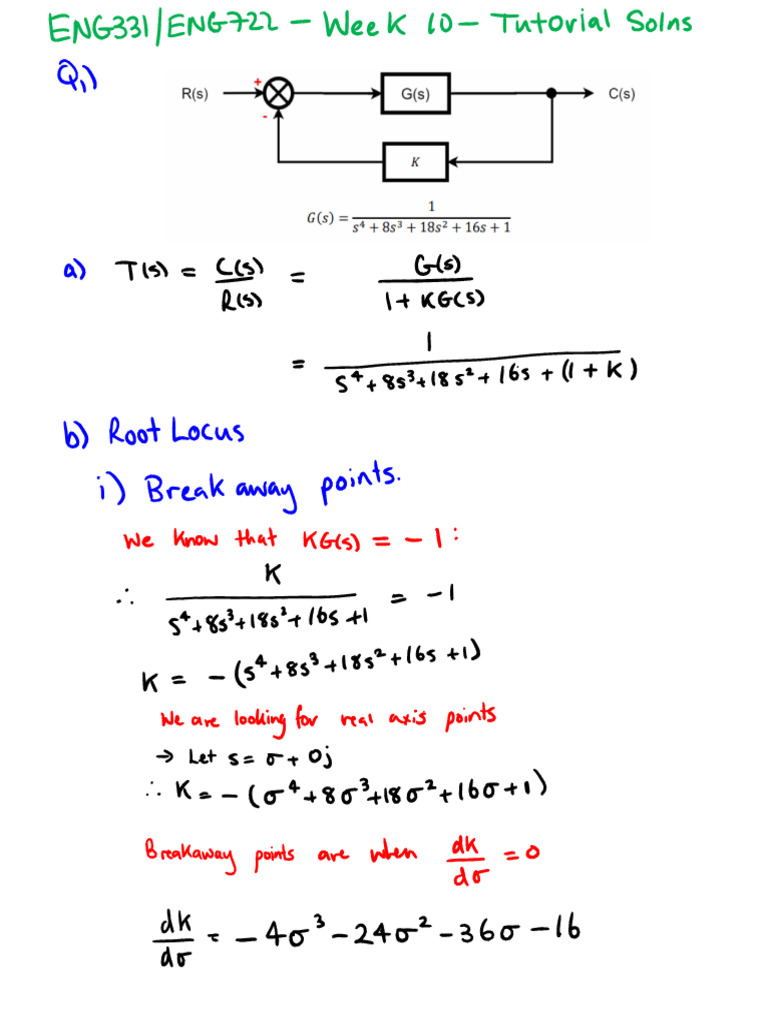 ENG331/ENG722 – Week 10 – Tutorial Solns
Q1)
R(s) + - G(s) C(s)
K
G(s) = 1 / (s⁴ + 8s³ + 18s² + 16s + 1)
a) T(s) = C(s)/R(s) = G(s) / (1 + KG(s))
= 1 / (s⁴ + 8s³ + 18s² + 16s + (1 + K))
b) Root Locus
i) Break away points.
We know that KG(s) = -1:
∴ K / (s⁴ + 8s³ + 18s² + 16s + 1) = -1
K = -(s⁴ + 8s³ + 18s² + 16s + 1)
We are looking for real axis points
→ Let s = σ + 0j
∴ K = -(σ⁴ + 8σ³ + 18σ² + 16σ + 1)
Breakaway points are when dk/dσ = 0
dk/dσ = -4σ³ - 24σ² - 36σ - 16